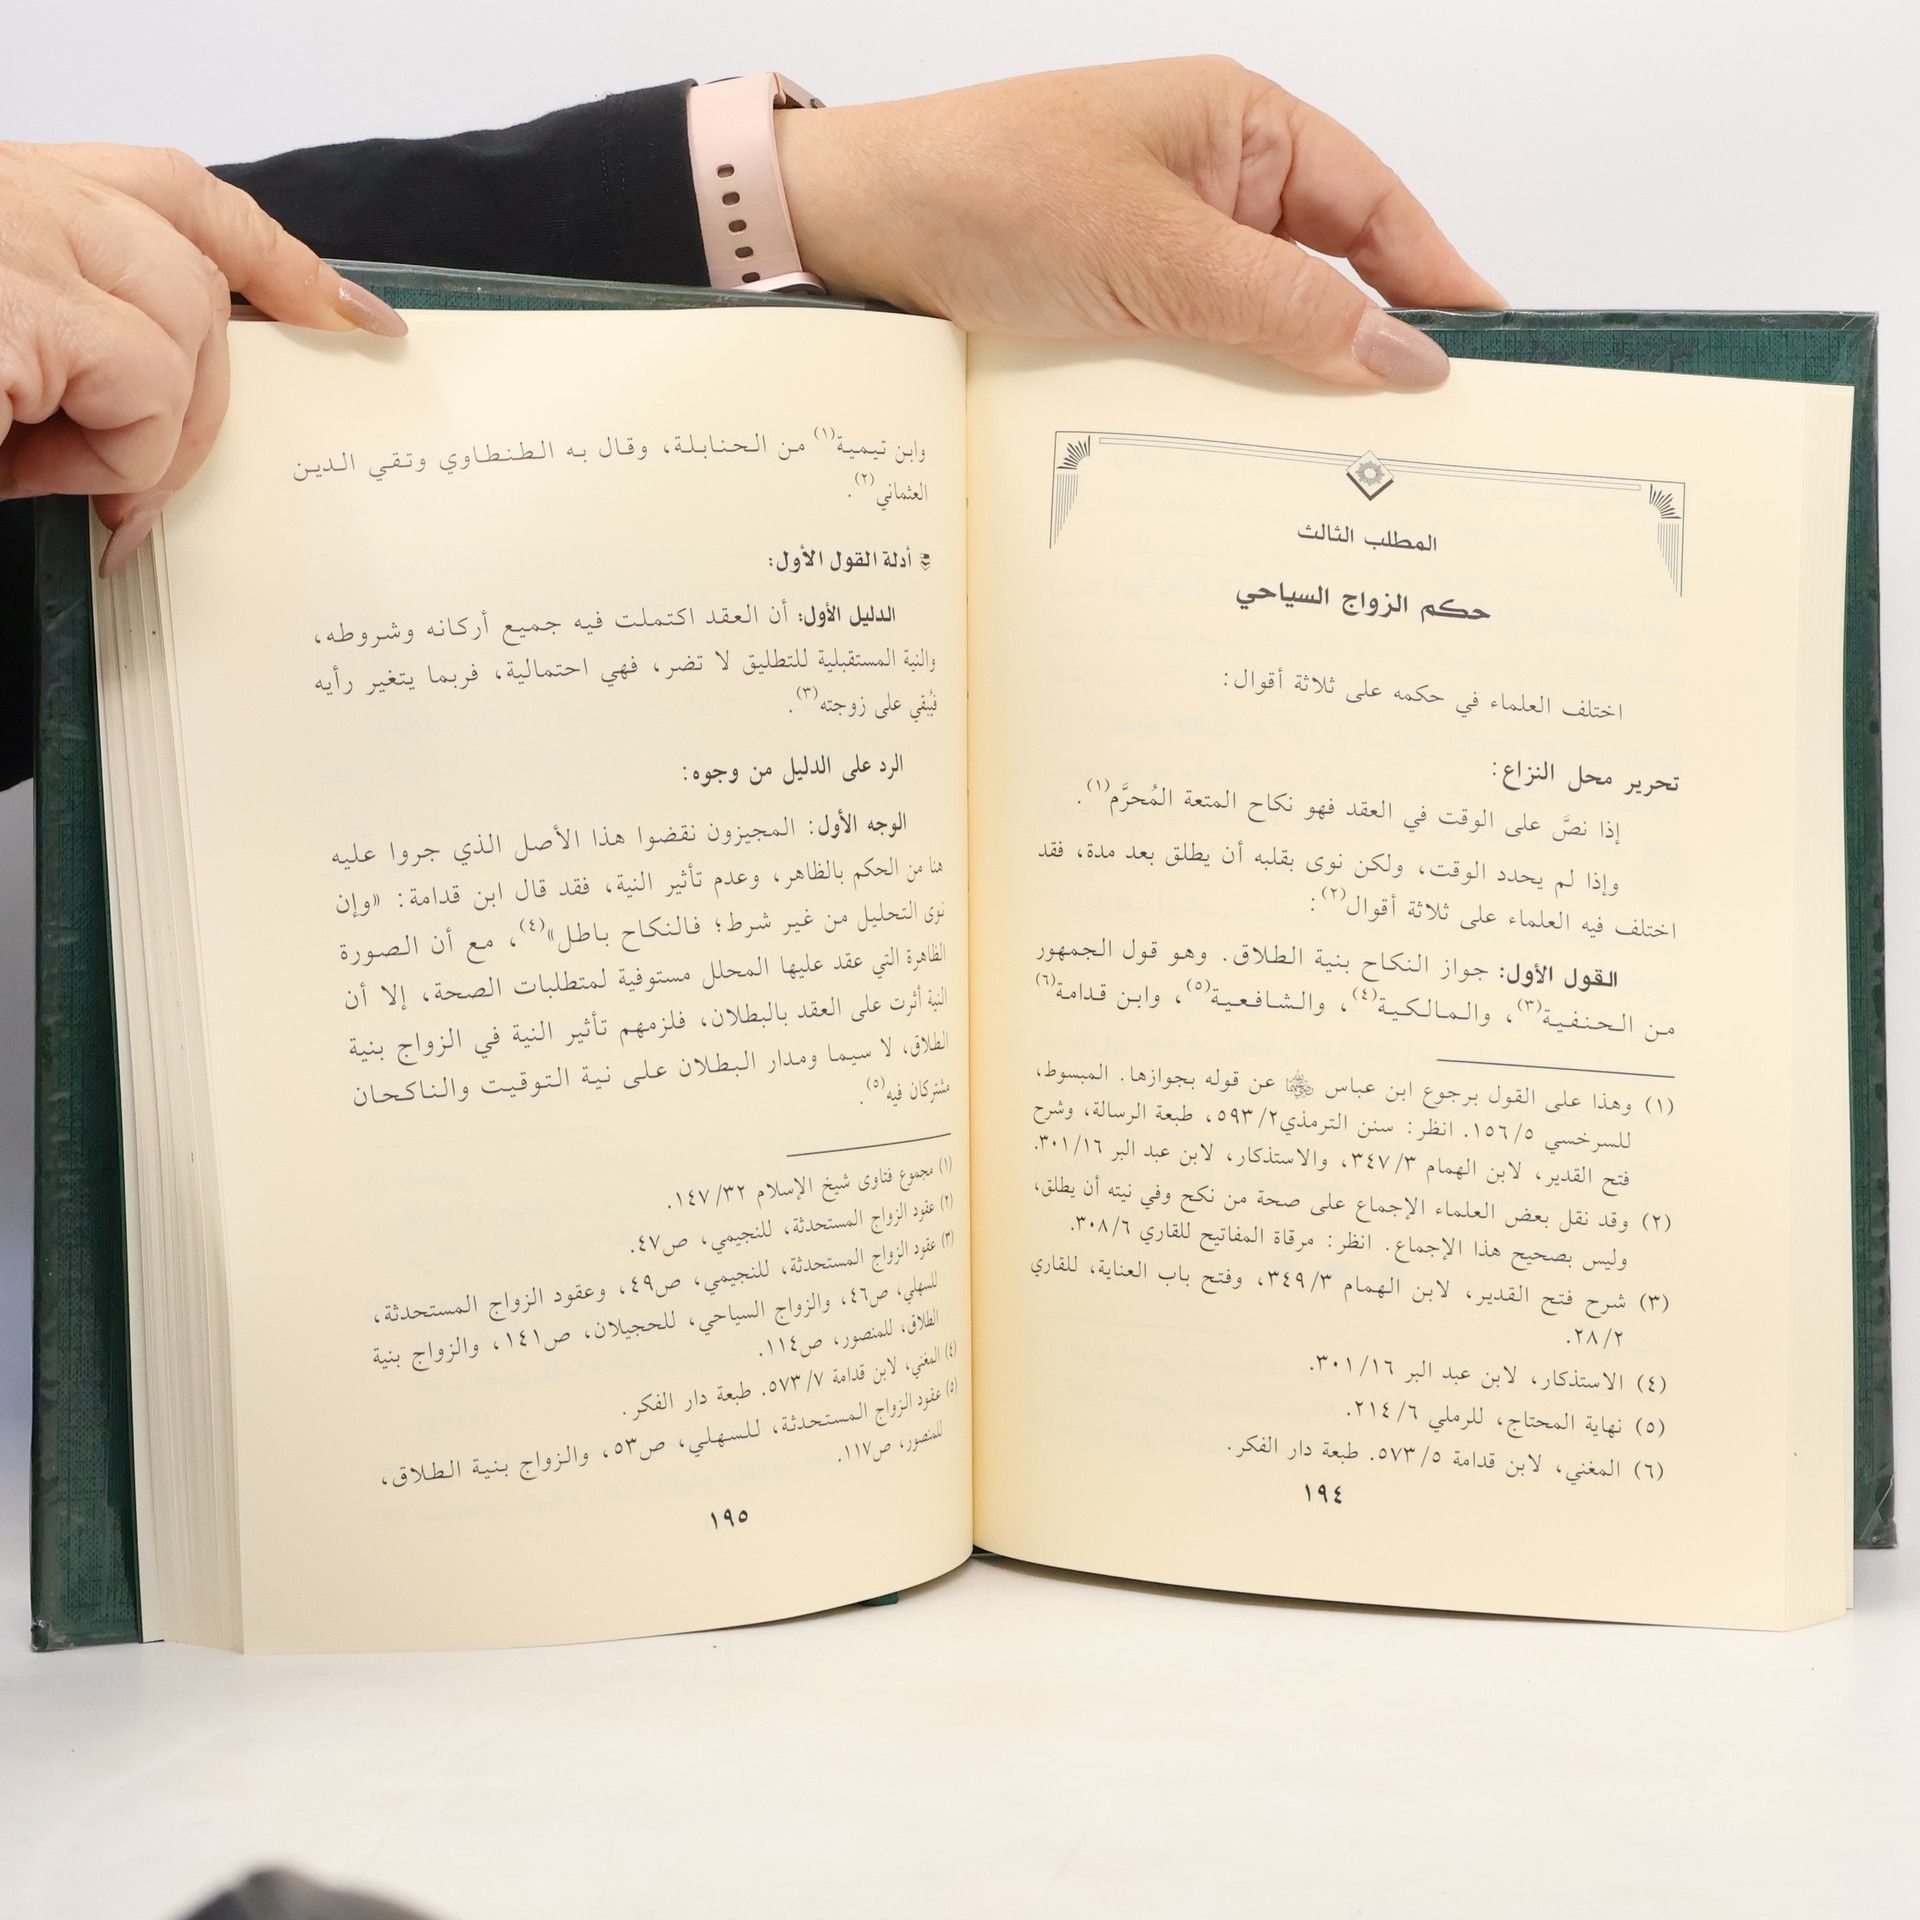 المطلب الثالث
حكم الزواج السياحي
اختلف العلماء في حكمه على ثلاثة أقوال:
تحرير محل النزاع:
إذا نصَّ على الوقت في العقد فهو نكاح المتعة المُحرَّم(١).
وإذا لم يحدد الوقت، ولكن نوى بقلبه أن يطلق بعد مدة، فقد
اختلف فيه العلماء على ثلاثة أقوال(٢):
القول الأول: جواز النكاح بنية الطلاق. وهو قول الجمهور
من الحنفية(٣)، والمالكية(٤)، والشافعية(٥)، وابن قدامة(٦)
(١) وهذا على القول برجوع ابن عباس عن قوله بجوازها. المبسوط،
للسرخسي ١٥٦/٥. انظر: سنن الترمذي ٥٩٣/٢، طبعة الرسالة، وشرح
فتح القدير، لابن الهمام ٣٤٧/٣، والاستذكار، لابن عبد البر ٣٠١/١٦.
(٢) وقد نقل بعض العلماء الإجماع على صحة من نكح وفي نيته أن يطلق،
وليس بصحيح هذا الإجماع. انظر: مرقاة المفاتيح للقاري ٣٠٨/٦.
(٣) شرح فتح القدير، لابن الهمام ٣٤٩/٣، وفتح باب العناية، للقاري
٢٨/٢.
(٤) الاستذكار، لابن عبد البر ٣٠١/١٦.
(٥) نهاية المحتاج، للرملي ٢١٤/٦.
(٦) المغني، لابن قدامة ٥٧٣/٥. طبعة دار الفكر.
١٩٤
وابن تيمية(١) من الحنابلة، وقال به الطنطاوي وتقي الدين
العثماني(٢).
أدلة القول الأول:
الدليل الأول: أن العقد اكتملت فيه جميع أركانه وشروطه،
والنية المستقبلية للتطليق لا تضر، فهي احتمالية، فربما يتغير رأيه
فيُبقي على زوجته(٣).
الرد على الدليل من وجوه:
الوجه الأول: المجيزون نقضوا هذا الأصل الذي جروا عليه
هنا من الحكم بالظاهر، وعدم تأثير النية، فقد قال ابن قدامة: «وإن
نوى التحليل من غير شرط؛ فالنكاح باطل»(٤)، مع أن الصورة
الظاهرة التي عقد عليها المحلل مستوفية لمتطلبات الصحة، إلا أن
النية أثرت على العقد بالبطلان، فلزمهم تأثير النية في الزواج بنية
الطلاق، لا سيما ومدار البطلان على نية التوقيت والناكحان
مشتركان فيه(٥).
(١) مجموع فتاوى شيخ الإسلام ١٤٧/٣٢.
(٢) عقود الزواج المستحدثة، للنجيمي، ص٤٧.
(٣) عقود الزواج المستحدثة، للنجيمي، ص٤٩، وعقود الزواج المستحدثة،
للسهلي، ص٤٦، والزواج السياحي، للحجيلان، ص١٤١، والزواج بنية
الطلاق، للمنصور، ص١١٤.
(٤) المغني، لابن قدامة ٥٧٣/٧. طبعة دار الفكر.
(٥) عقود الزواج المستحدثة، للسهلي، ص٥٣، والزواج بنية الطلاق،
للمنصور، ص١١٧.
١٩٥